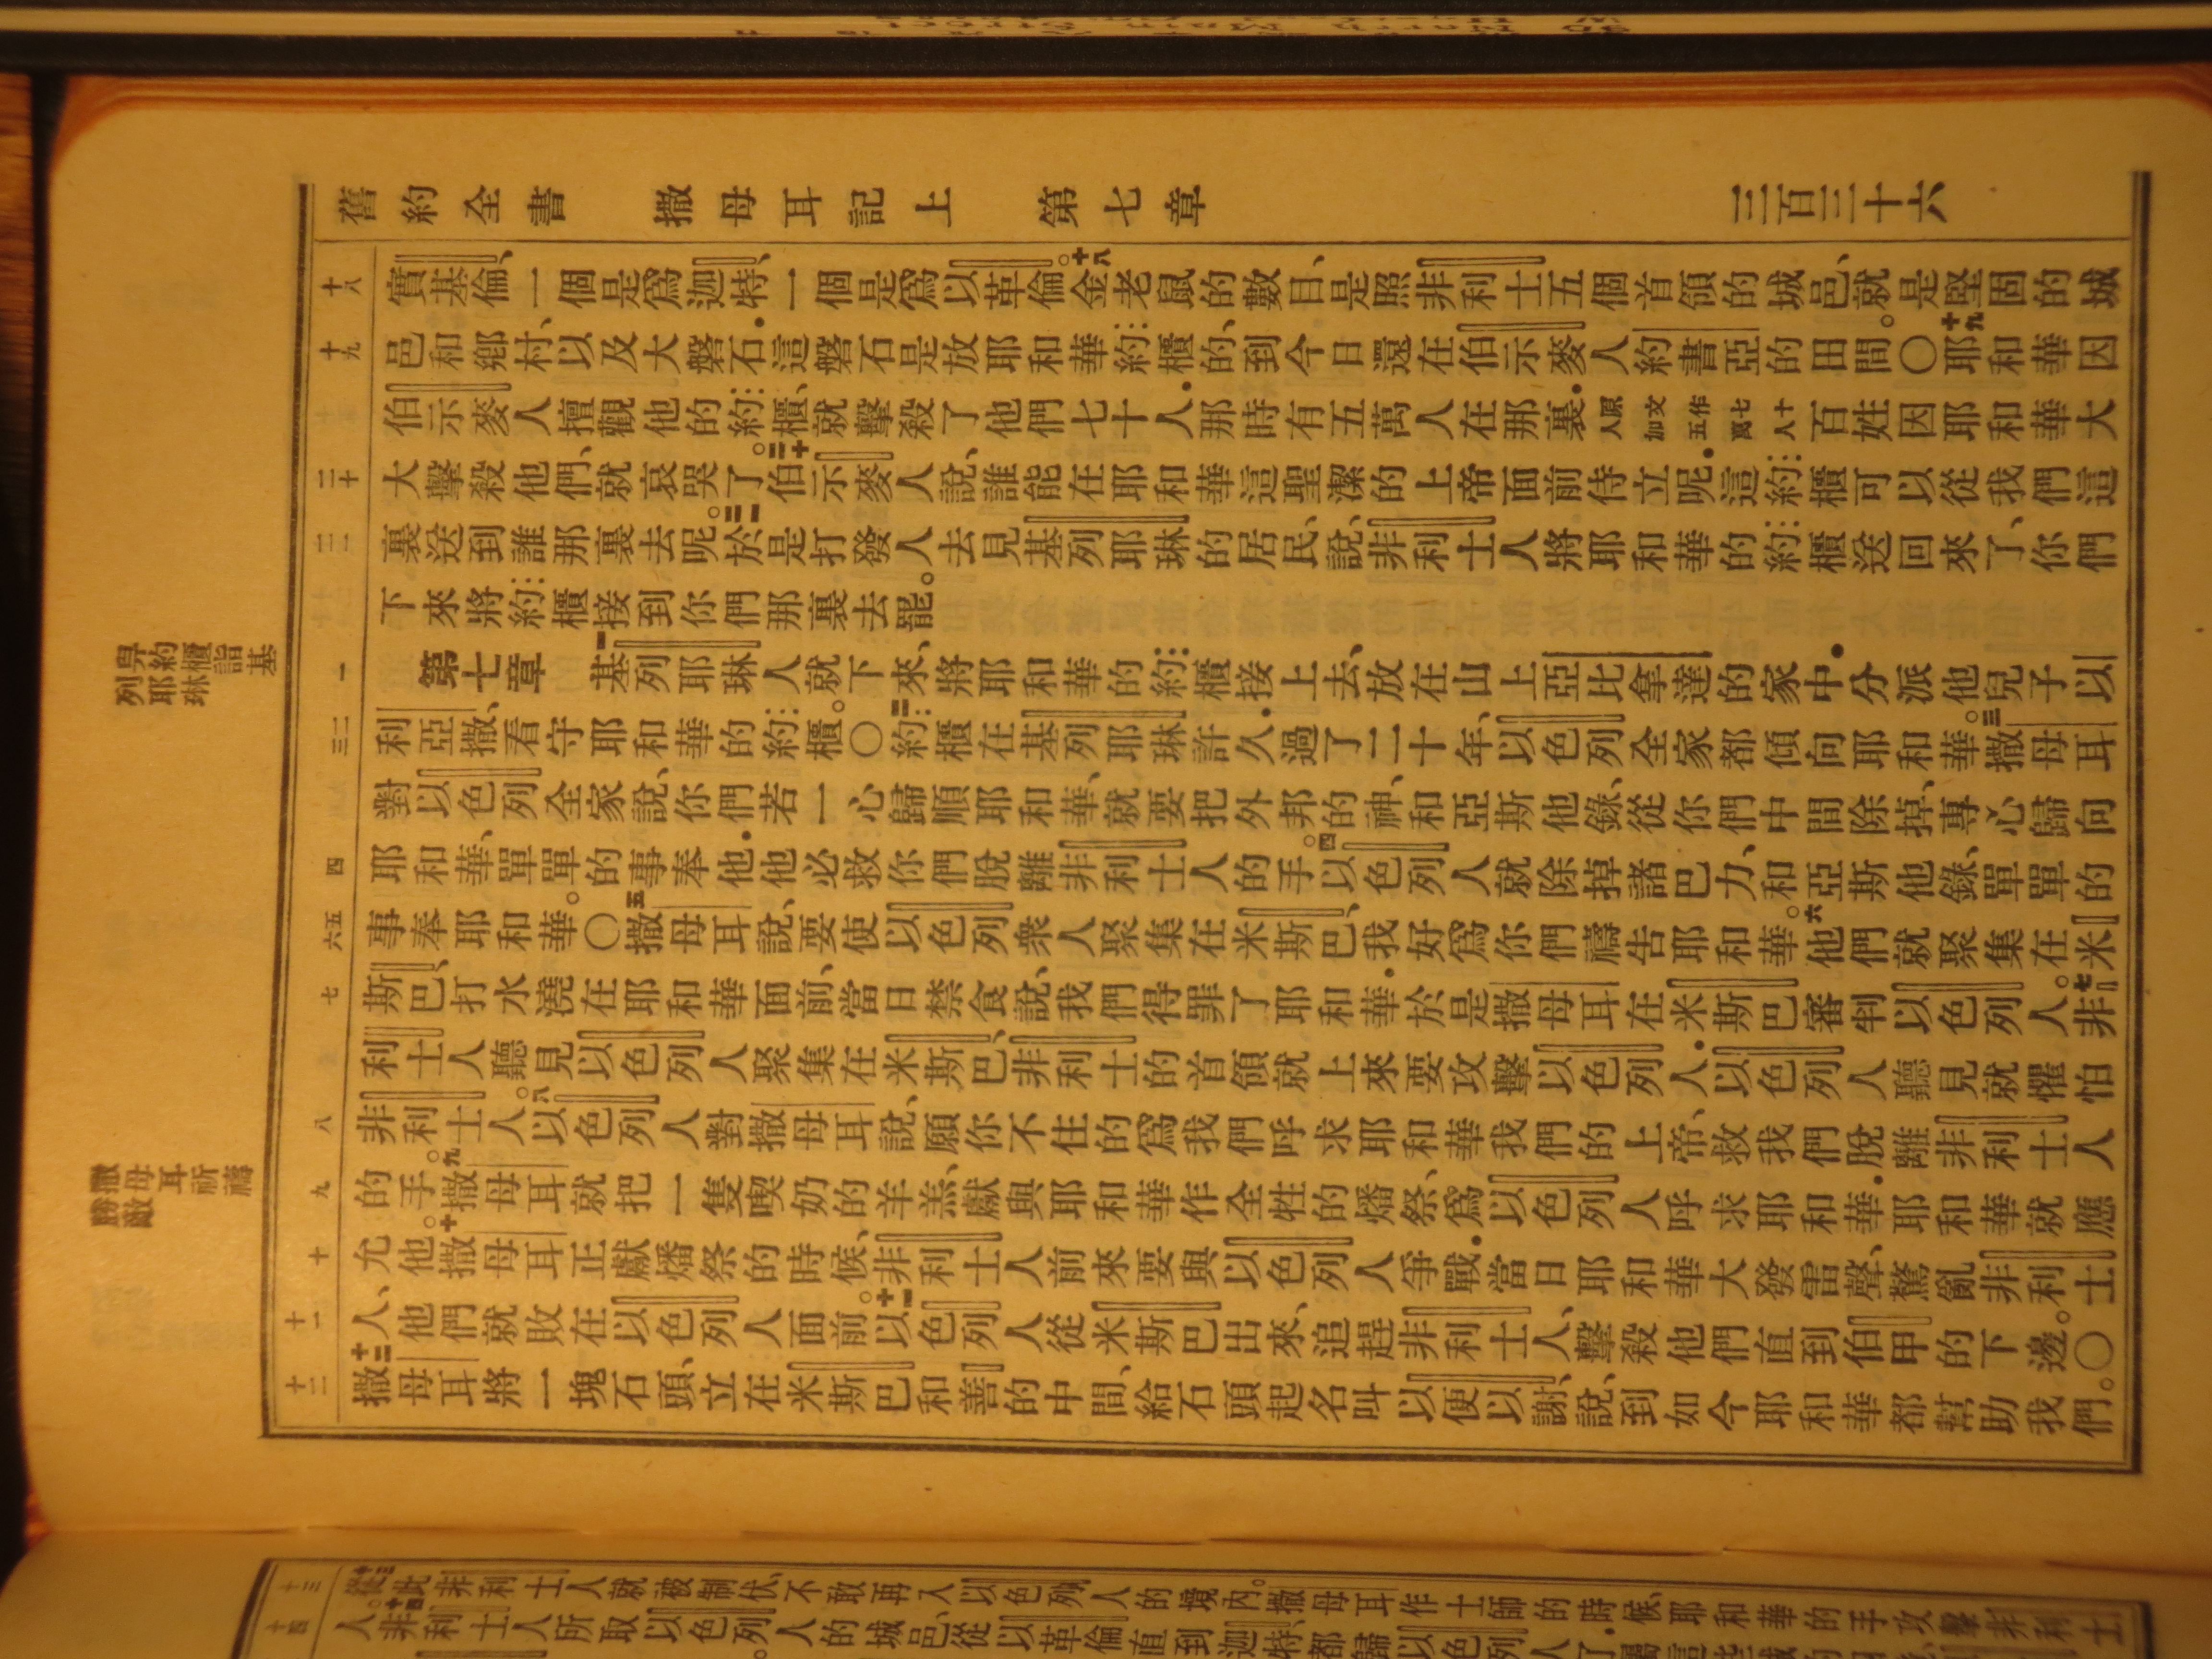 舊約全書 撒母耳記上 第七章 三百三十六
十八 實基倫、一個是爲迦特、一個是爲以革倫。十八金老鼠的數目、是照非利士五個首領的城邑、就是堅固的城
十九 邑和鄉村、以及大磐石.這磐石是放耶和華約櫃的、到今日還在伯示麥人約書亞的田間。〇十九耶和華因
伯示麥人擅觀他的約櫃、就擊殺了他們七十人.那時有五萬人在那裏.原文作七十人加五萬人百姓因耶和華大
二十 大擊殺他們、就哀哭了。二十伯示麥人說、誰能在耶和華這聖潔的上帝面前侍立呢.這約櫃可以從我們這
二一 裏送到誰那裏去呢。二一於是打發人去見基列耶琳的居民、說、非利士人將耶和華的約櫃送回來了、你們
下來將約櫃接到你們那裏去罷。
舁約櫃詣基
列耶琳
一 第七章 一基列耶琳人就下來、將耶和華的約櫃接上去、放在山上亞比拿達的家中.分派他兒子以
二三 利亞撒、看守耶和華的約櫃。〇二約櫃在基列耶琳許久.過了二十年、以色列全家都傾向耶和華。三撒母耳
對以色列全家說、你們若一心歸順耶和華、就要把外邦的神、和亞斯他錄、從你們中間除掉、專心歸向
四 耶和華、單單的事奉他.他必救你們脫離非利士人的手。四以色列人就除掉諸巴力、和亞斯他錄、單單的
五六 事奉耶和華。〇五撒母耳說、要使以色列衆人聚集在米斯巴、我好爲你們禱告耶和華。六他們就聚集在米
七 斯巴、打水澆在耶和華面前、當日禁食說、我們得罪了耶和華.於是撒母耳在米斯巴審判以色列人。七非
利士人聽見以色列人聚集在米斯巴、非利士的首領就上來要攻擊以色列人.以色列人聽見就懼怕
八 非利士人。八以色列人對撒母耳說、願你不住的爲我們呼求耶和華我們的上帝、救我們脫離非利士人
九 的手。九撒母耳就把一隻喫奶的羊羔、獻與耶和華作全牲的燔祭、爲以色列人呼求耶和華.耶和華就應
撒母耳祈禱
勝敵
十 允他。十撒母耳正獻燔祭的時候、非利士人前來要與以色列人爭戰.當日耶和華大發雷聲、驚亂非利士
十一 人、他們就敗在以色列人面前。十一以色列人從米斯巴出來、追趕非利士人、擊殺他們直到伯甲的下邊。〇
十二 十二撒母耳將一塊石頭、立在米斯巴和善的中間、給石頭起名叫以便以謝、說、到如今耶和華都幫助我們。
十三 十三從此非利士人就被制伏、不敢再入以色列人的境內。撒母耳作士師的時候、耶和華的手攻擊非利士
十四 人。十四非利士人所取以色列人的城邑、從以革倫直到迦特、都歸以色列人了.屬這些城的